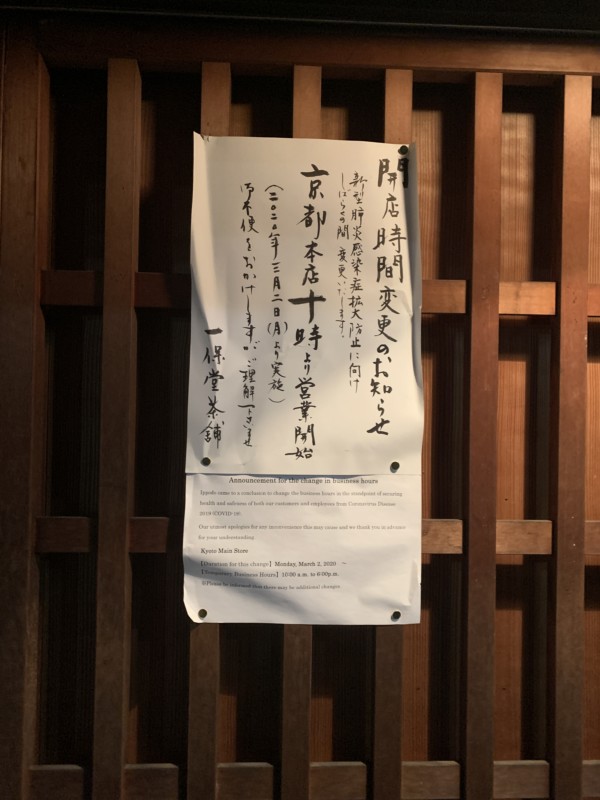 開店時間変更のお知らせ
新型肺炎感染症拡大防止に向け
しばらくの間 変更いたします。
京都本店十時より営業開始
(二〇二〇年三月二日(月)より実施)
御不便をおかけしますが、ご理解下さいませ
一保堂茶舗
Announcement for the change in business hours
Ippodo came to a conclusion to change the business hours in the standpoint of securing
health and safeness of both our customers and employees from Coronavirus Disease
2019 (COVID-19).
Our utmost apologies for any inconvenience this may cause and we thank you in advance
for your understanding.
Kyoto Main Store
【Duration for this change】Monday, March 2, 2020 ～
【Temporary Business Hours】10:00 a.m. to 6:00p.m.
※Please be advised that there may be additional changes.